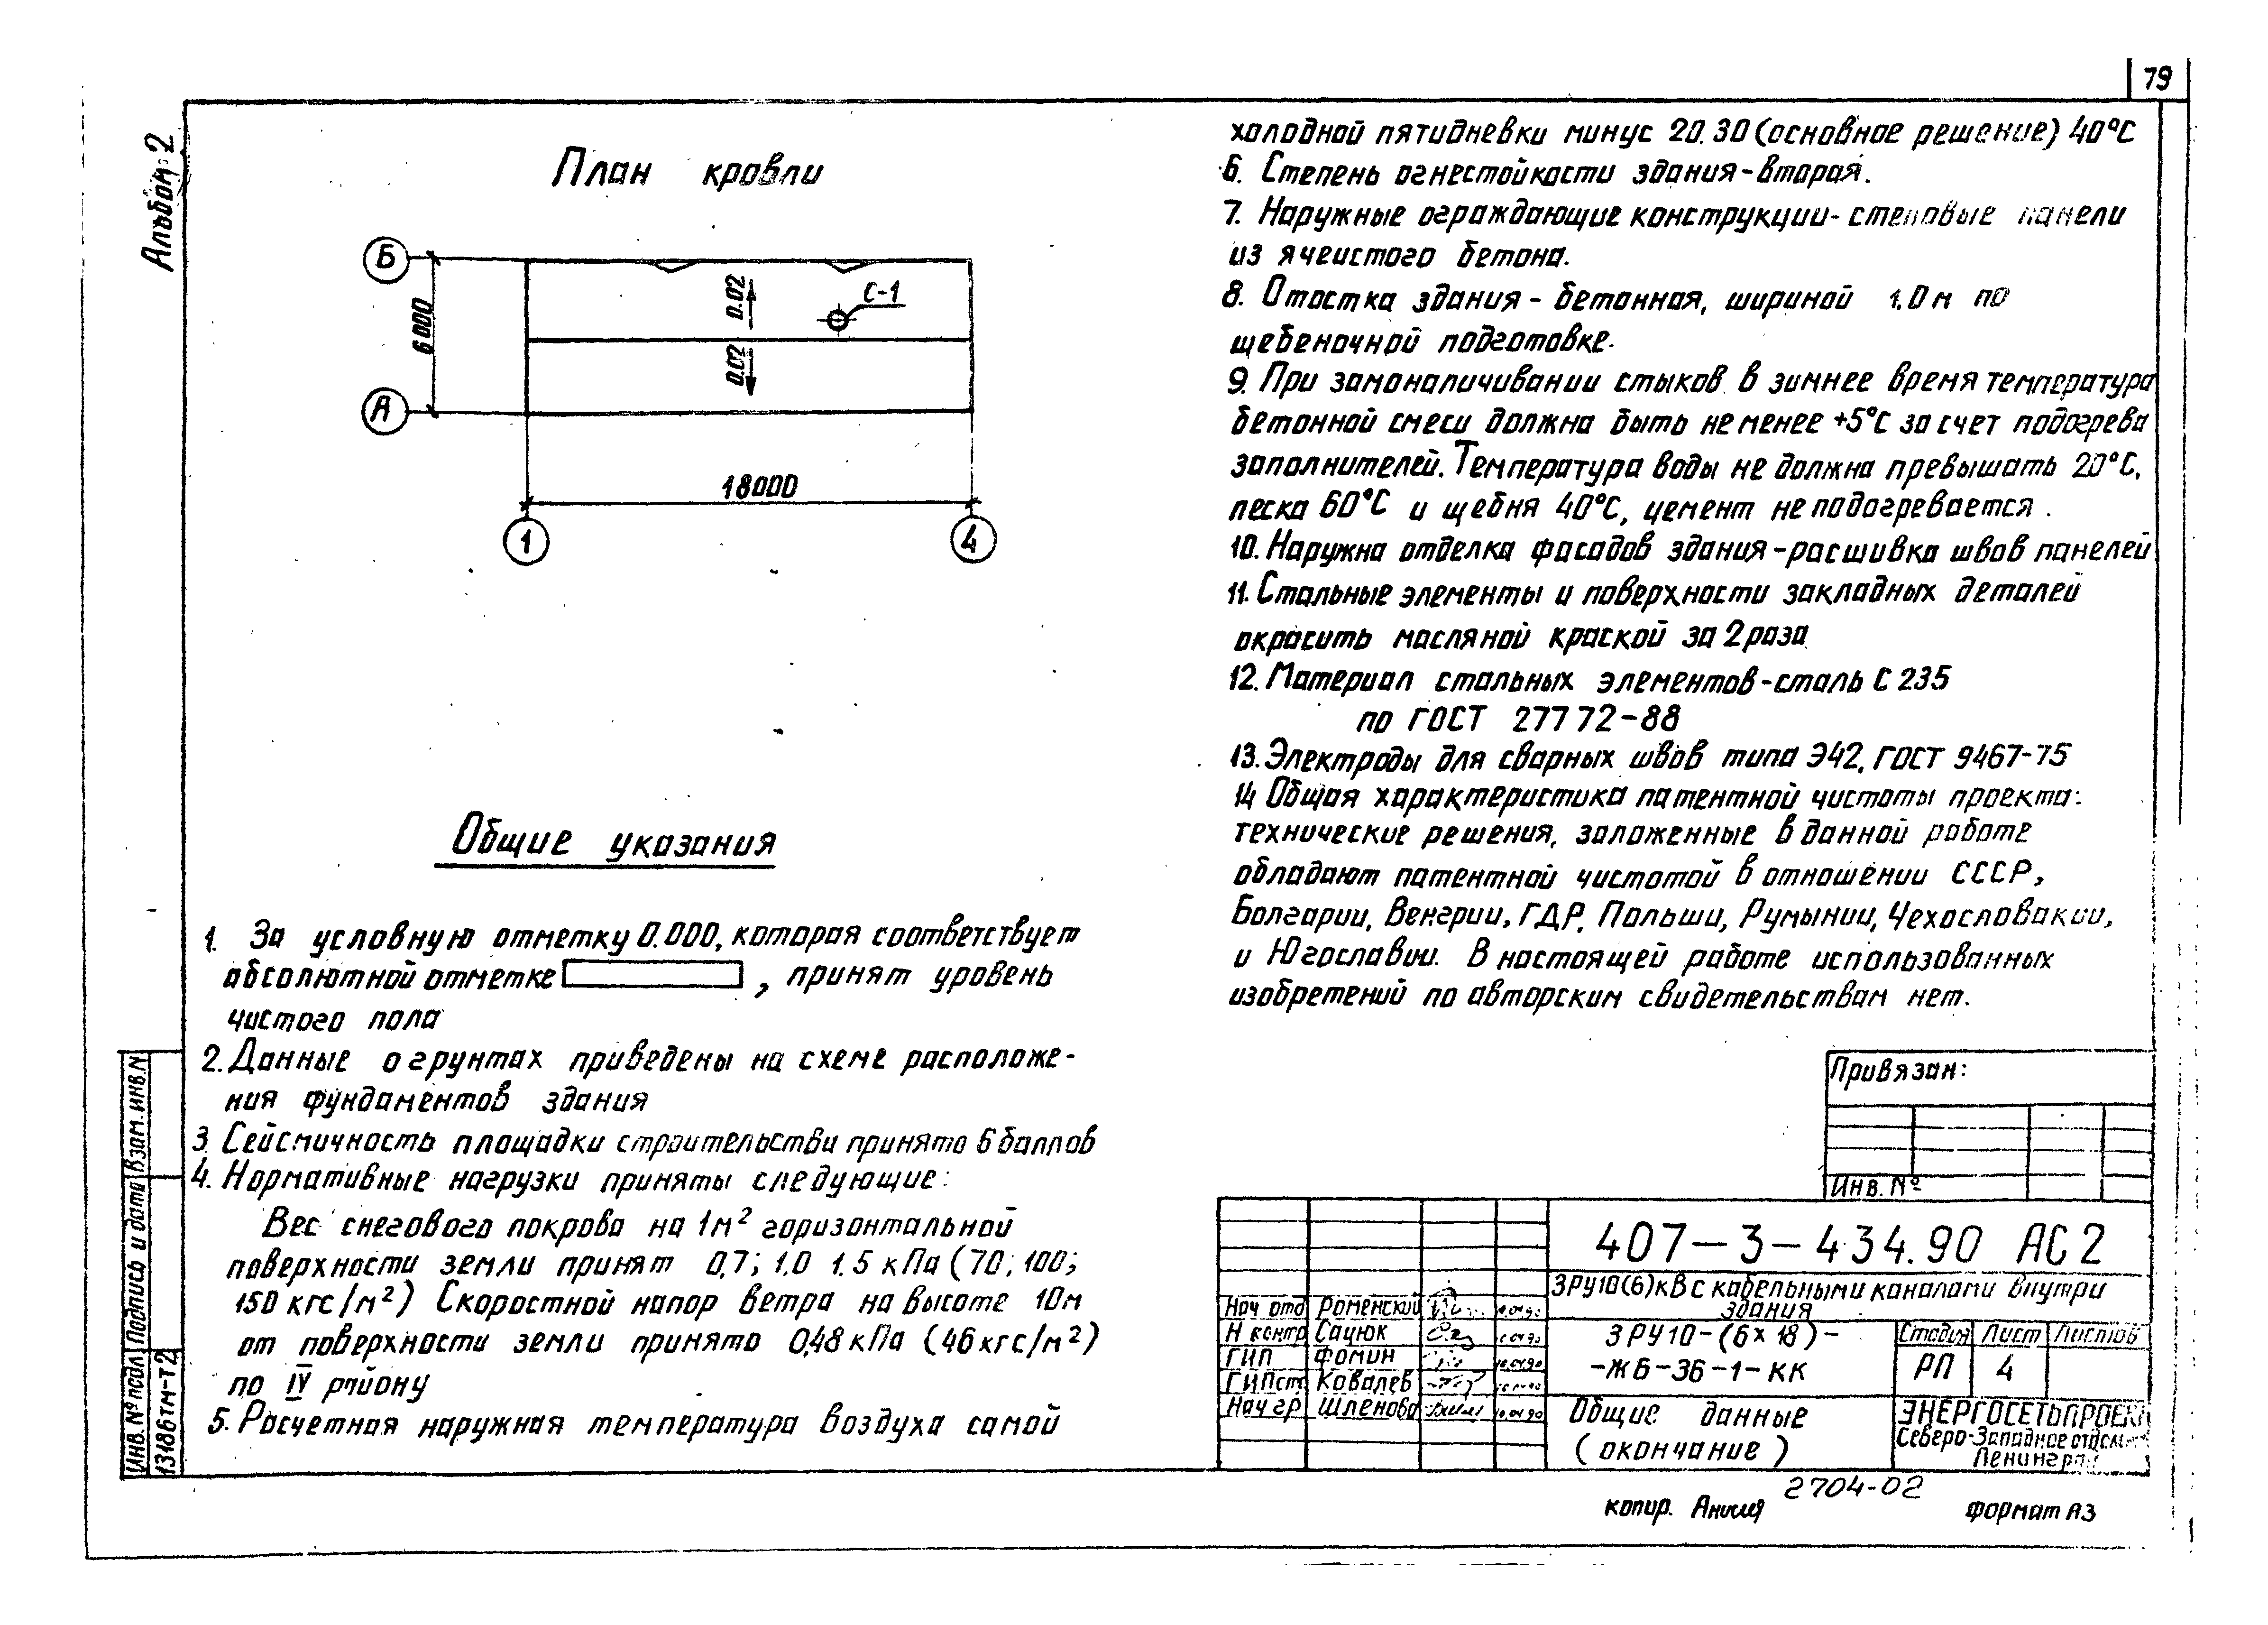 79
Альбом 2
План кровли
Б
6000
А
0.02
0.02
С-1
18000
1
4
Общие указания
1. За условную отметку 0.000, которая соответствует
абсолютной отметке , принят уровень
чистого пола
2. Данные о грунтах приведены на схеме расположе-
ния фундаментов здания
3 Сейсмичность площадки строительстви принято 6 баллов
4. Нормативные нагрузки приняты следующие:
Вес снегового покрова на 1м² горизонтальной
поверхности земли принят 0,7; 1.0 1.5 кПа (70; 100;
150 кгс/м²) Скоростной напор ветра на высоте 10м
от поверхности земли принято 0,48 кПа (46 кгс/м²)
по IV району
5. Расчетная наружная температура воздуха самой
холодной пятидневки минус 20. 30 (основное решение) 40°С
6. Степень огнестойкости здания-вторая.
7. Наружные ограждающие конструкции- стеновые панели
из ячеистого бетона.
8. Отостка здания - бетонная, шириной 1.0м по
щебеночной подготовке.
9. При замоналичивании стыков в зимнее время температура
бетонной смеси должна быть не менее +5°С за счет подогрева
заполнителей. Температура воды не должна превышать 20°С,
песка 60°С и щебня 40°С, цемент не подогревается.
10. Наружна отделка фасадов здания-расшивка швов панелей
11. Стальные элементы и поверхности закладных деталей
окрасить масляной краской за 2 раза
12. Материал стальных элементов-сталь С 235
по ГОСТ 27772-88
13. Электроды для сварных швов типа Э42, ГОСТ 9467-75
14 Общая характеристика патентной чистоты проекта:
технические решения, заложенные в данной работе
обладают патентной чистотой в отношении СССР,
Болгарии, Венгрии, ГДР, Польши, Румынии, Чехословакии,
и Югославии. В настоящей работе использованных
изобретений по авторским свидетельствам нет.
Привязан:
Инв. №
407-3-434.90 АС2
ЗРУ10(6)кВ с кабельными каналами внутри
здания
Нач отд Роменский 10.04.90
Н контр Сацюк
ГИП Фомин 10.04.90
ГИПст Ковалев
Нач гр Шленова 10.04.90
ЗРУ10-(6х18)-
-ЖБ-36-1-КК
Стадия Лист Листов
РП 4
Общие данные
(окончание)
ЭНЕРГОСЕТЬПРОЕКТ
Северо-Западное отдел
Ленинград
2704-02
копир.
Формат А3
Взам. инв. N
Подпись и дата
Инв. № подл
13186тм-Т2